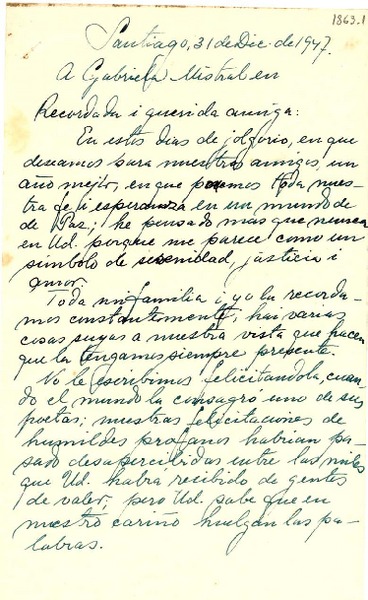 1863.1
Santiago, 31 de Dic. de 1947.
A Gabriela Mistral en
Recordada i querida amiga:
En estos dias de jolgorio, en que
deseamos para nuestros amigos, un
año mejor, en que ponemos toda nues-
tra fe i esperanza en un mundo de
de Paz; he pensado mas que nunca
en Ud. porque me parece como un
símbolo de serenidad, justicia i
amor.
Toda mi familia i yo la recorda-
mos constantemente; hai varias
cosas suyas a nuestra vista que hacen
que la tengamos siempre presente.
No le escribimos felicitandola, cuan-
do el mundo la consagró uno de sus
poetas; nuestras felicitaciones de
humildes profanos habrian pa-
sado desapercibidas entre las miles
que Ud. habrá recibido de gentes
de valer; pero Ud. sabe que en
nuestro cariño huelgan las pa-
labras.